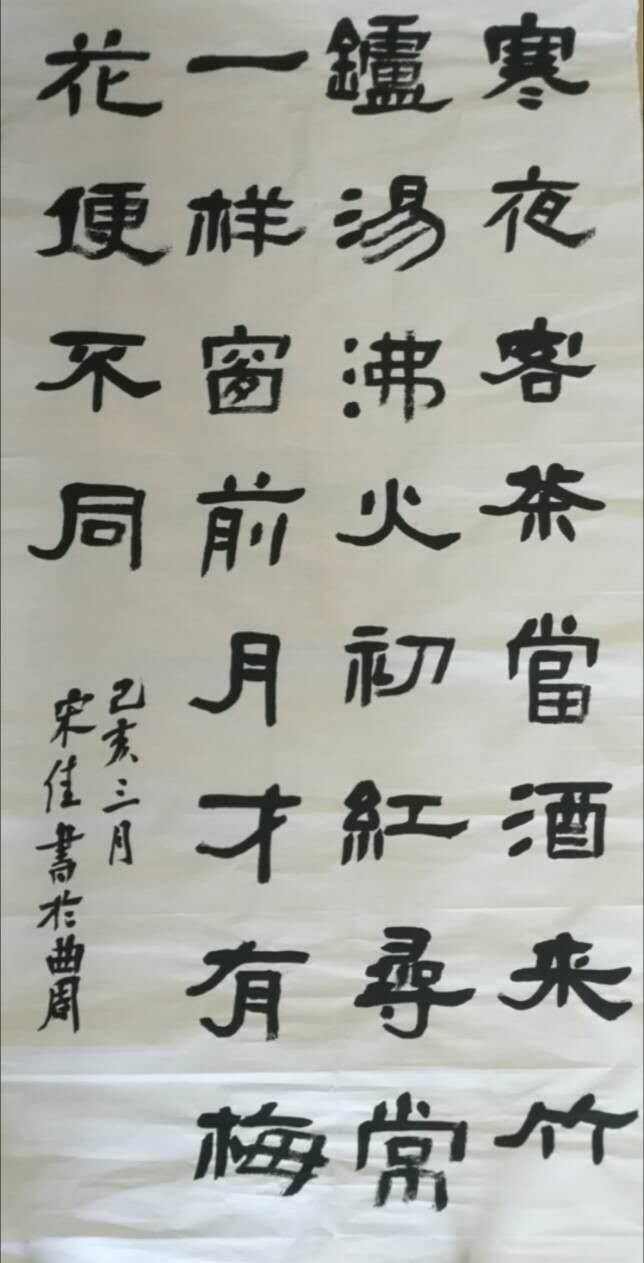 寒夜客茶當酒来竹
鑪湯沸火初紅尋常
一样窗前月才有梅
花便不同
己亥三月
宋佳書於曲周